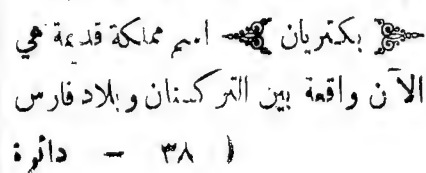 ﴿ بكتريان ﴾ اسم مملكة قديمة هي
الآن واقعة بين التركستان وبلاد فارس
( ٣٨ – دائرة